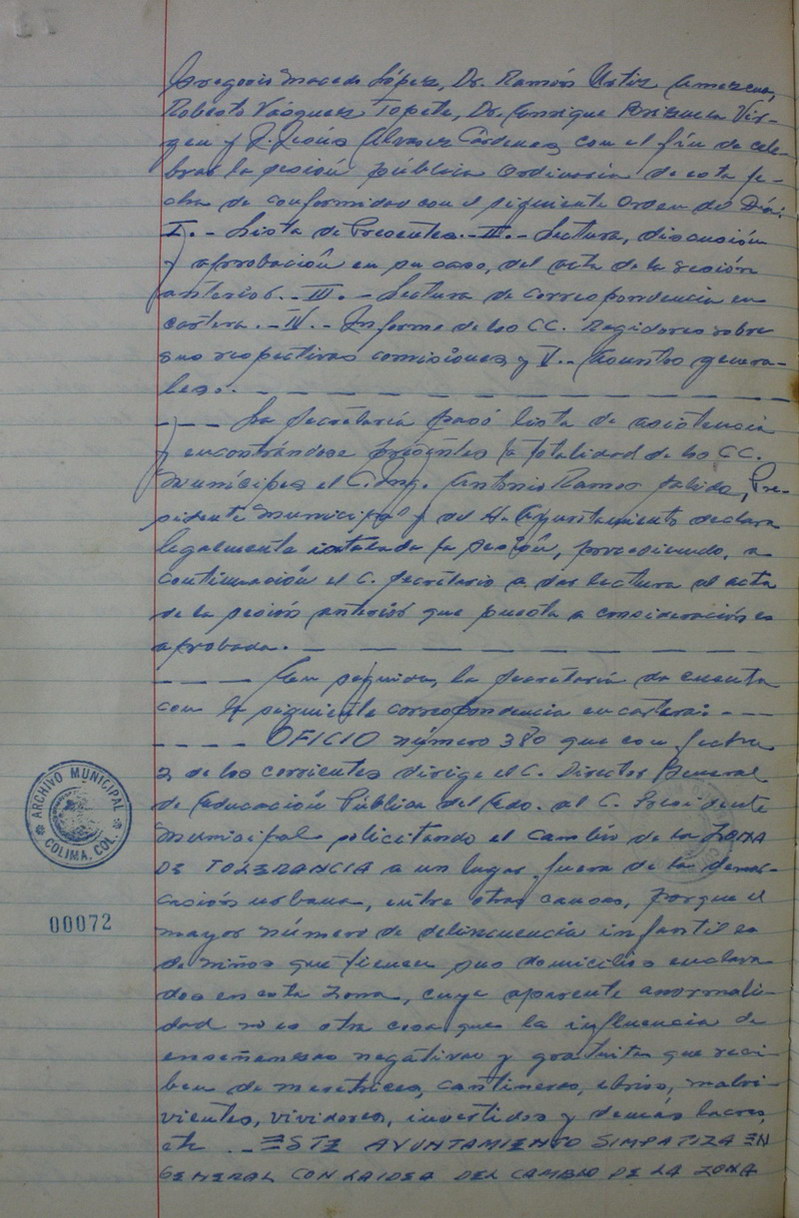 Gregorio Macedo López, Dr. Ramón Ortiz Amezcua,
Roberto Vásquez Topete, Dr. Enrique Brizuela Vir-
gen y J. Jesús Alvarez Cárdenas, con el fín de cele-
brar la sesión pública Ordinaria de esta fe-
cha de conformidad con el siguiente Orden del Día:
I.- Lista de Presentes.- II.- Lectura, discusión
y aprobación en su caso, del acta de la sesión
anterior.- III.- Lectura de correspondencia en
cartera.- IV.- Informe de los CC. Regidores sobre
sus respectivas comisiones y V.- Asuntos genera-
les.-
--- La Secretaría pasó lista de asistencia
y encontrándose presentes la totalidad de los CC.
Munícipes el C. Ing. Antonio Ramos Salido, Pre-
sidente Municipal y del H. Ayuntamiento declara
legalmente instalada la sesión, procediendo, a
continuación el C. Secretario a dar lectura al acta
de la sesión anterior que puesta a consideración es
aprobada.
---- En seguida, la Secretaría da cuenta
con la siguiente correspondencia en cartera: ---
---- OFICIO número 380 que con fecha
2 de los corrientes dirige el C. Director General
de Educación Pública del Edo. al C. Presidente
Municipal solicitando el cambio de la ZONA
DE TOLERANCIA a un lugar fuera de la demar-
cación urbana, entre otras causas, porque el
mayor número de delincuencia infantil es
de niños que tienen sus domicilios enclava
dos en esta zona, cuya aparente anormali-
dad no es otra cosa que la influencia de
enseñanzas negativas y gratuitas que reci-
ben de meretrices, cantineros, ebrios, malvi-
vientes, vividores, invertidos y demás lacras,
etc.- ESTE AYUNTAMIENTO SIMPATIZA EN
GENERAL CON LA IDEA DEL CAMBIO DE LA ZONA
ARCHIVO MUNICIPAL
COLIMA, COL.
00072